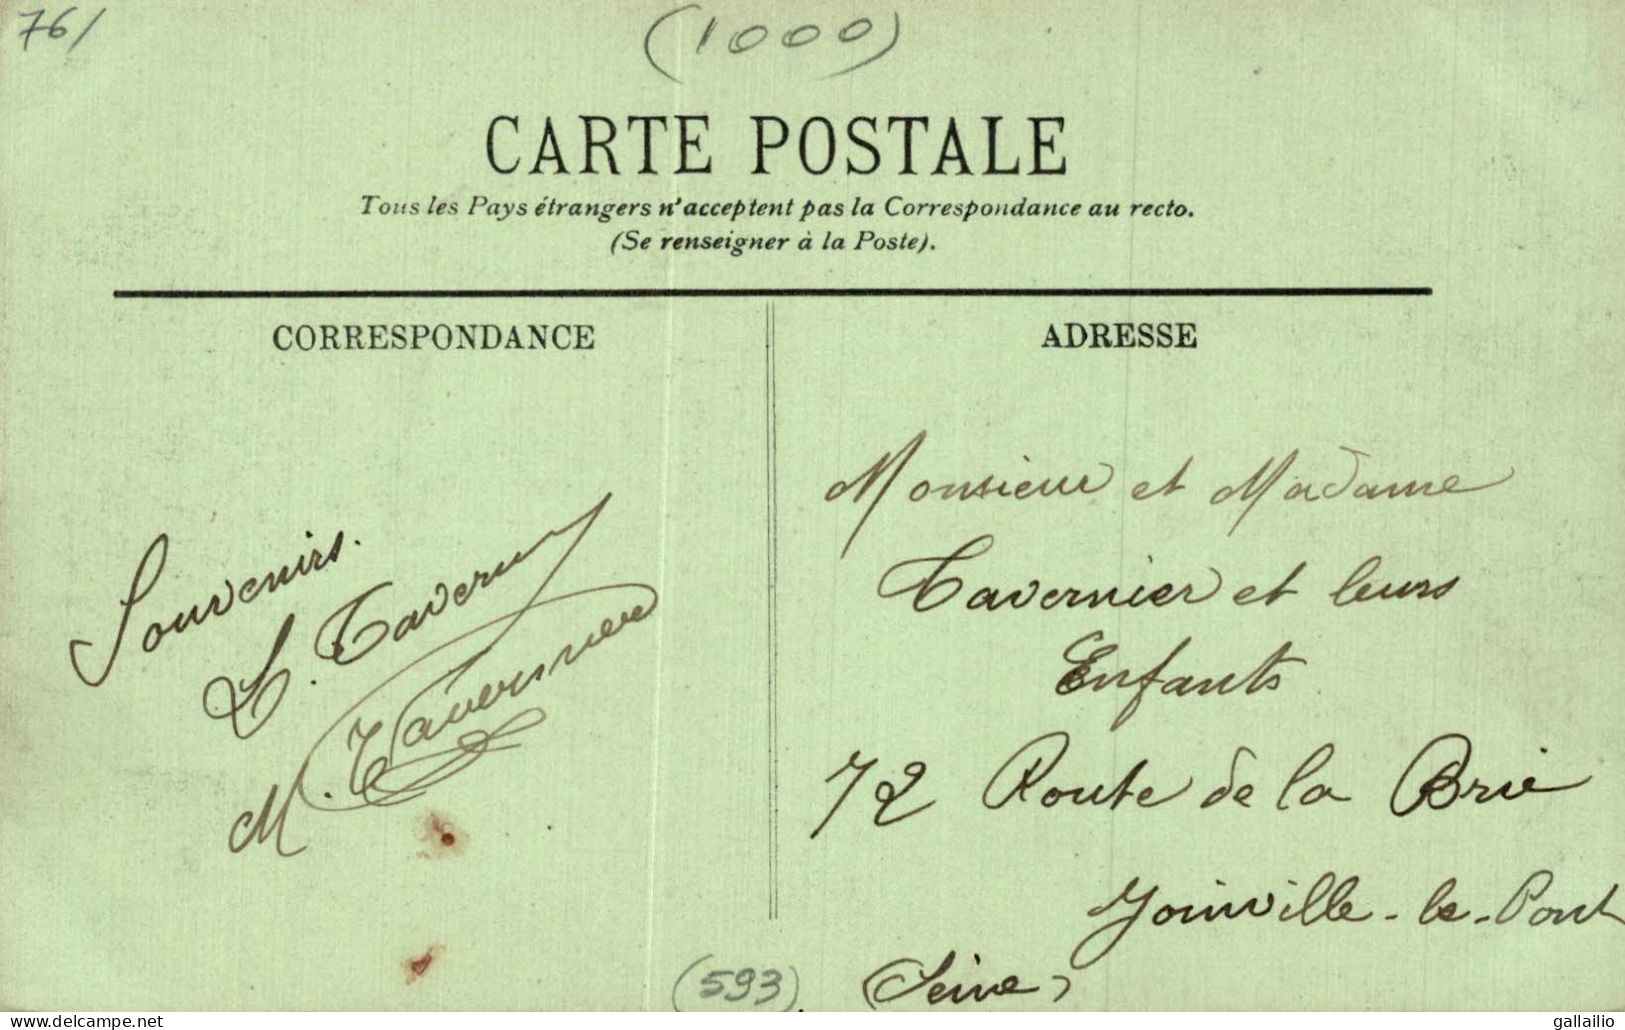 76/
(1000)
CARTE POSTALE
Tous les Pays étrangers n'acceptent pas la Correspondance au recto.
(Se renseigner à la Poste).
CORRESPONDANCE
Souvenirs.
L. Tavernier
M. Tavernier
ADRESSE
Monsieur et Madame
Tavernier et leurs
Enfants
72 Route de la Brie
Joinville-le-Pont
(Seine)
(593)
delcampe.net
gallailio